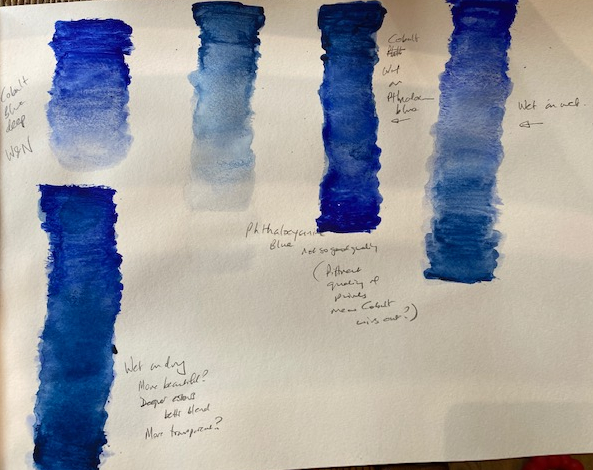 Cobalt
Blue
deep
W&N
Cobalt
Wet
on
Pthalocy
blue
Wet on wet.
Phthalocyanine
Blue
Not so good quality
(Different
quality of
paints
mean Cobalt
wins out?)
Wet on dry
More beautiful?
Deeper colours
better blend
More transparent?